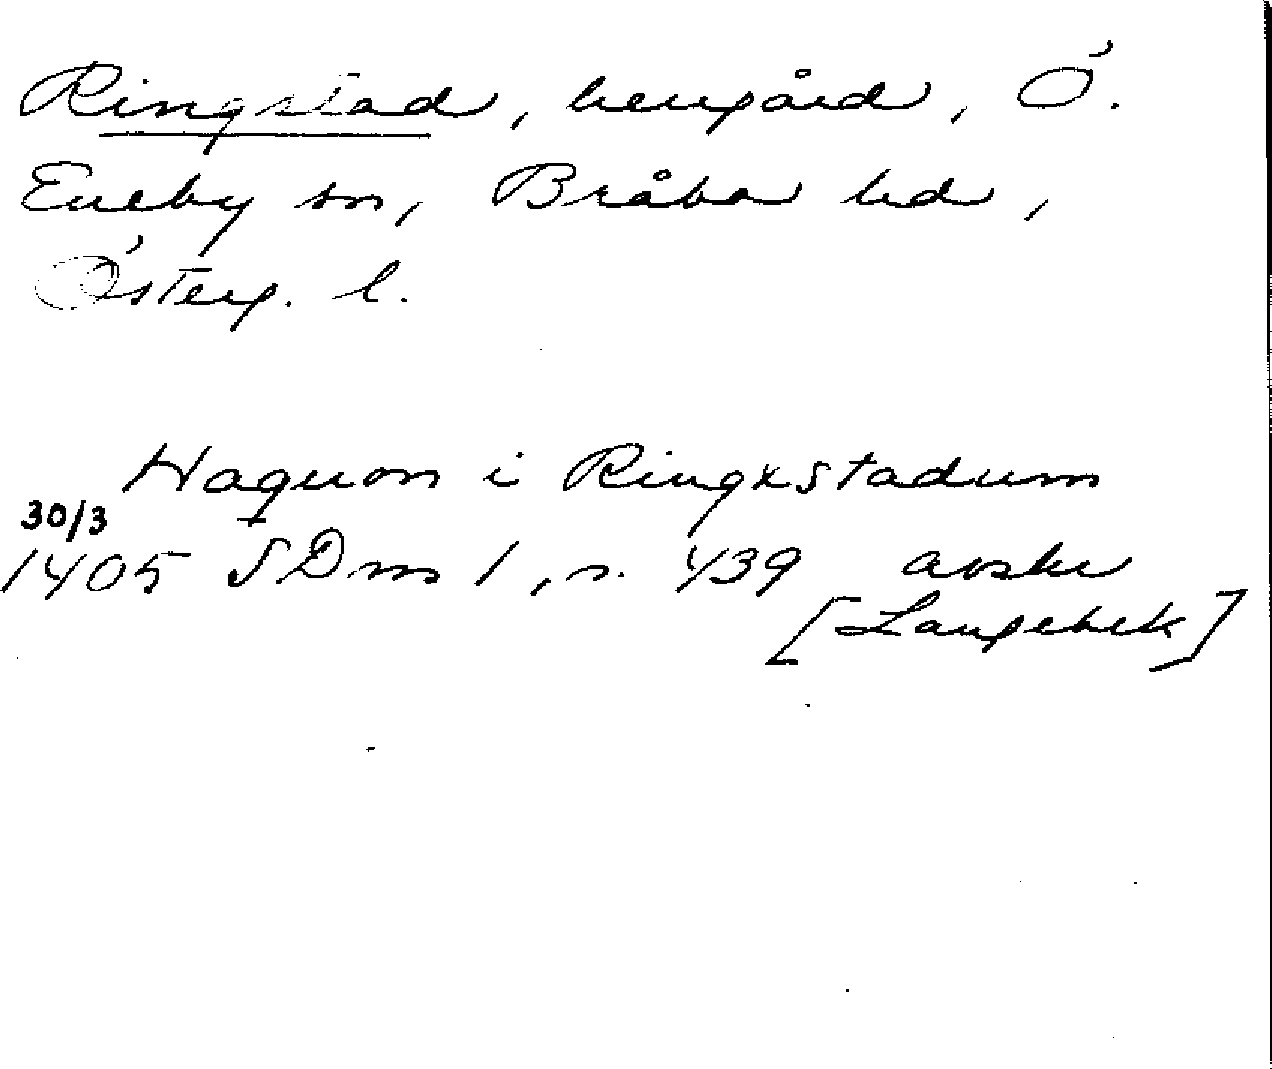 Ringstad, herrgård, Ö.
Eneby sn, Bråbo hd,
Österg. l.
Haquon i Ringxstadum
30/3
1405 SDns 1, s. 439 avskr
[Langebek]